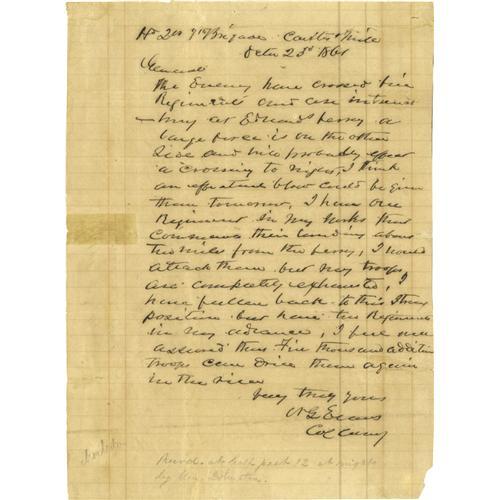 Hd Qrs 7th Brigade Carter's Mills
Octr 23d 1861
General
The Enemy have crossed five
Regiments and are intrench-
ing at Edwards Ferry a
large force is on the other
side and will probably effect
a crossing to night, I think
an effectual blow could be given
them tomorrow, I have one
Regiment in my works that
commands their landing about
two miles from the ferry, I would
attack them but my troops
are completely exhausted, I
have fallen back to this strong
position but have two Regiments
in my advance, I feel well
assured that Five thousand addition
troops can drive them again
in the river
Very truly yours
N G Evans
Col Comg
Recvd at half past 12 at night
by Genl Johnston